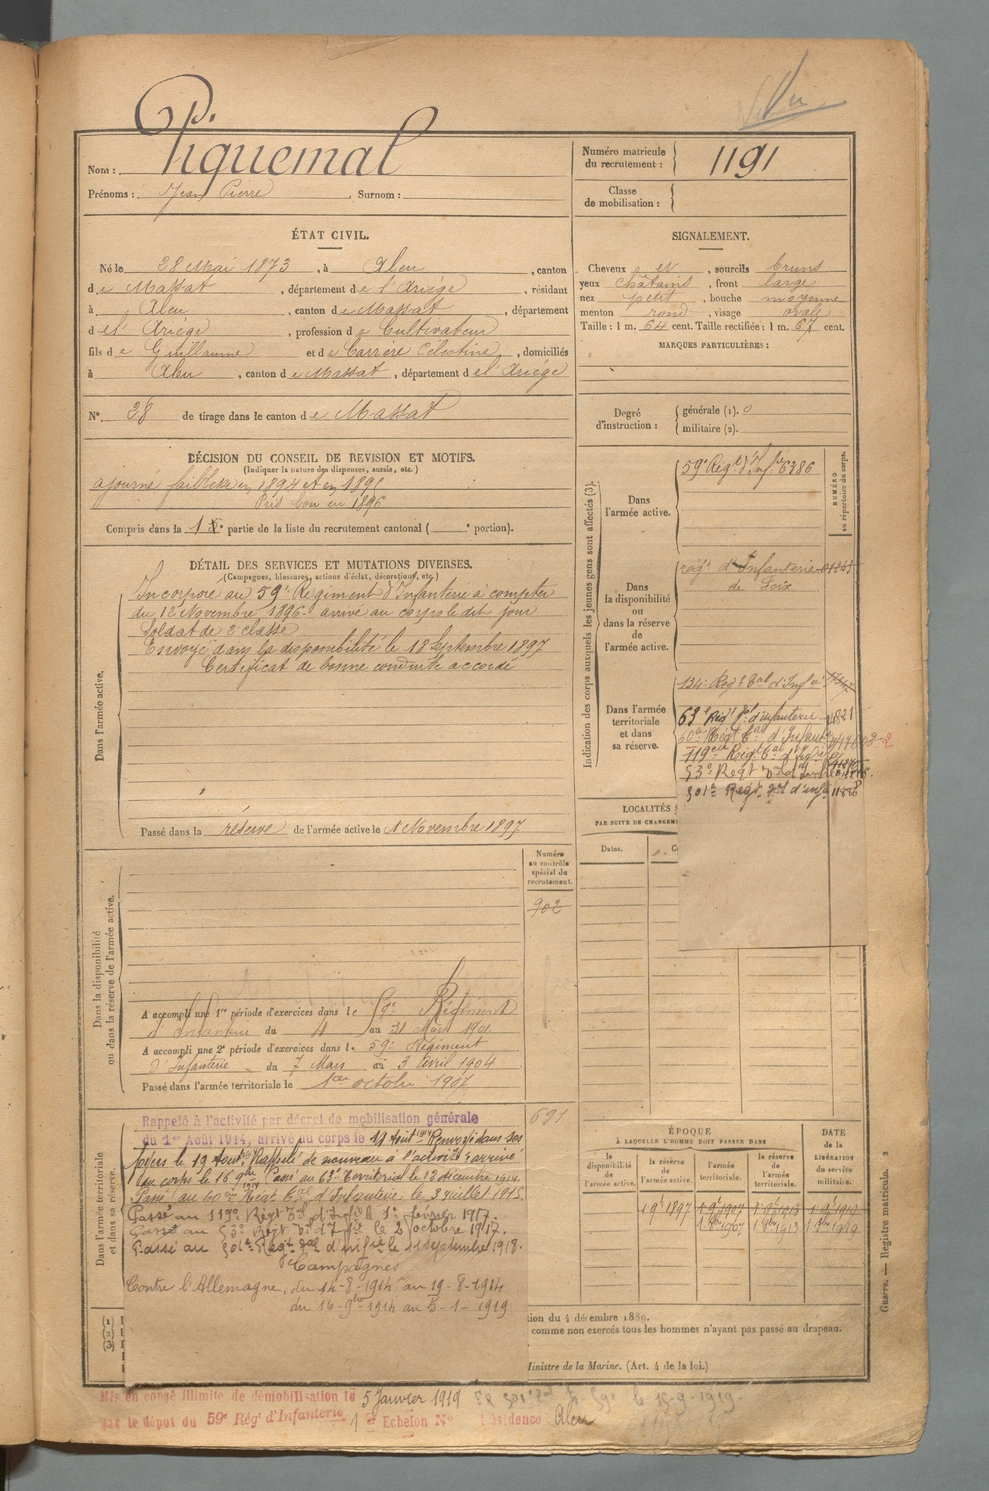 Piquemal
Nom :
Prénoms : Jean Pierre , Surnom :
Numéro matricule
du recrutement : 1191
Classe
de mobilisation :
ÉTAT CIVIL.
Né le 28 Mai 1873 , à Aleu , canton
de Massat , département de l'Ariège , résidant
à Aleu , canton de Massat , département
d el' Ariège , profession de Cultivateur
fils de Guillaume et de Carrère Célestine , domiciliés
à Aleu , canton de Massat , département de l'Ariège
N° 28 de tirage dans le canton de Massat
SIGNALEMENT.
Cheveux et , sourcils bruns
yeux châtains , front large
nez petit , bouche moyenne
menton rond , visage ovale
Taille : 1 m. 64 cent. Taille rectifiée : 1 m. 67 cent.
MARQUES PARTICULIÈRES :
Degré
d'instruction :
générale (1). 0
militaire (2).
DÉCISION DU CONSEIL DE REVISION ET MOTIFS.
(Indiquer la nature des dispenses, sursis, etc.)
ajourné faiblesse en 1894 et en 1895
Pris bon en 1896
Compris dans la 1e partie de la liste du recrutement cantonal ( e portion).
DÉTAIL DES SERVICES ET MUTATIONS DIVERSES.
(Campagnes, blessures, actions d'éclat, décorations, etc.)
Dans l'armée active.
Incorporé au 59e Régiment d'Infanterie à compter
du 12 Novembre 1896. arrivé au corps le dit jour
Soldat de 2 classe
Envoyé dans la disponibilité le 18 Septembre 1897
Certificat de bonne conduite accordé
Passé dans la réserve de l'armée active le 1 Novembre 1897
Indication des corps auxquels les jeunes gens sont affectés (3).
Dans
l'armée active.
59e Regt d'Infie 6386
NUMÉRO
au répertoire du corps.
Dans
la disponibilité
ou
dans la réserve
de
l'armée active.
régt d'Infanterie
de Foix
Dans l'armée
territoriale
et dans
sa réserve.
134e Regt Tal d'Infie
63e Regt Tal d'infanterie
60me Régt Tal d'Infanterie
119eme Régt Tal d'Infie
53e Regt Tal d'Infie
501e Regt Tal d'inf
LOCALITÉS
PAR SUITE DE CHANGEM
Dates.
Numéro
au contrôle
spécial du
recrutement.
902
Dans la disponibilité
ou dans la réserve de l'armée active.
A accompli une 1re période d'exercices dans le 59e Régiment
d'Infanterie du 4 au 31 Mars 1901
A accompli une 2e période d'exercices dans le 59e Régiment
d'Infanterie du 7 Mars au 3 Avril 1904
Passé dans l'armée territoriale le 1er octobre 1907
691
Dans l'armée territoriale
et dans sa réserve.
Rappelé à l'activité par décret de mobilisation générale
du 1er Août 1914, arrivé au corps le 14 Août 1914 Renvoyé dans ses
foyers le 19 Août. Rappelé de nouveau à l'activité arrivé
au corps le 16 9bre 1914 Passé au 63e Territorial le 12 décembre 1914
Passé au 60me Régt Tal d'Infanterie le 2 juillet 1915.
Passé au 119e Régt Tal d'Infie le 1er février 1917.
Passé au 53e Régt Tal d'Infie le 2 octobre 1917.
Passé au 501e Regt Tal d'infie le 11 septembre 1918.
Campagnes
Contre l'Allemagne, du 14-8-1914 au 19-8-1914
du 16-9bre-1914 au 5-1-1919
ÉPOQUE
À LAQUELLE L'HOMME DOIT PASSER DANS
la
disponibilité
de
l'armée active.
la réserve
de
l'armée active.
l'armée
territoriale.
la réserve
de
l'armée
territoriale.
DATE
de la
LIBÉRATION
du service
militaire.
1 9bre 1897 1 9bre 1907 1 9bre 1913 1 9bre 1919
1 8bre 1907 1 8bre 1913 1 8bre 1919
(1)
(2)
(3)
tion du 4 décembre 1889.
comme non exercés tous les hommes n'ayant pas passé au drapeau.
Ministre de la Marine. (Art. 4 de la loi.)
Guerre. — Registre matricule. 2
Mis en congé illimité de démobilisation le 5 Janvier 1919
par le dépôt du 59e Régt d'Infanterie 1er Echelon N° Résidence Aleu
le 15-9-1919